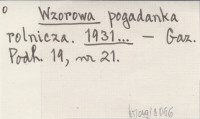 Wzorowa pogadanka
rolnicza. 1931... — Gaz.
Podh. 19, nr 21.